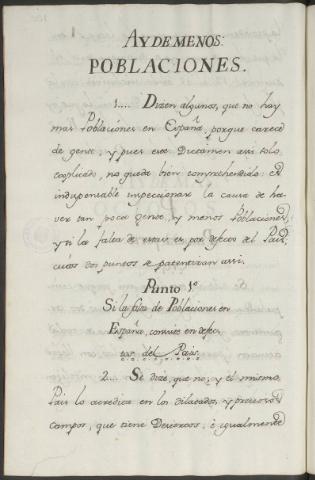 AY DE MENOS:
POBLACIONES.
1.... Dizen algunos, que no hay
mas Poblaciones en España, porque carece
de gente, y pues este Dictamen assi solo
explicado, no quede bien comprehendido: es
indispensable inspeccionar la causa de ha-
ver tan poca gente, y menos Poblaciones,
y si la falta de estas es por defecto del Pais,
cuios dos puntos se patentizan assi.
Punto 1º
Si la falta de Poblaciones en
España, consiste en defec-
tos del Pais.
2... Se dize, que no; y el mismo
Pais lo acredita en los dilatados, y preciosos
campos, que tiene Desiertos; è igualmente